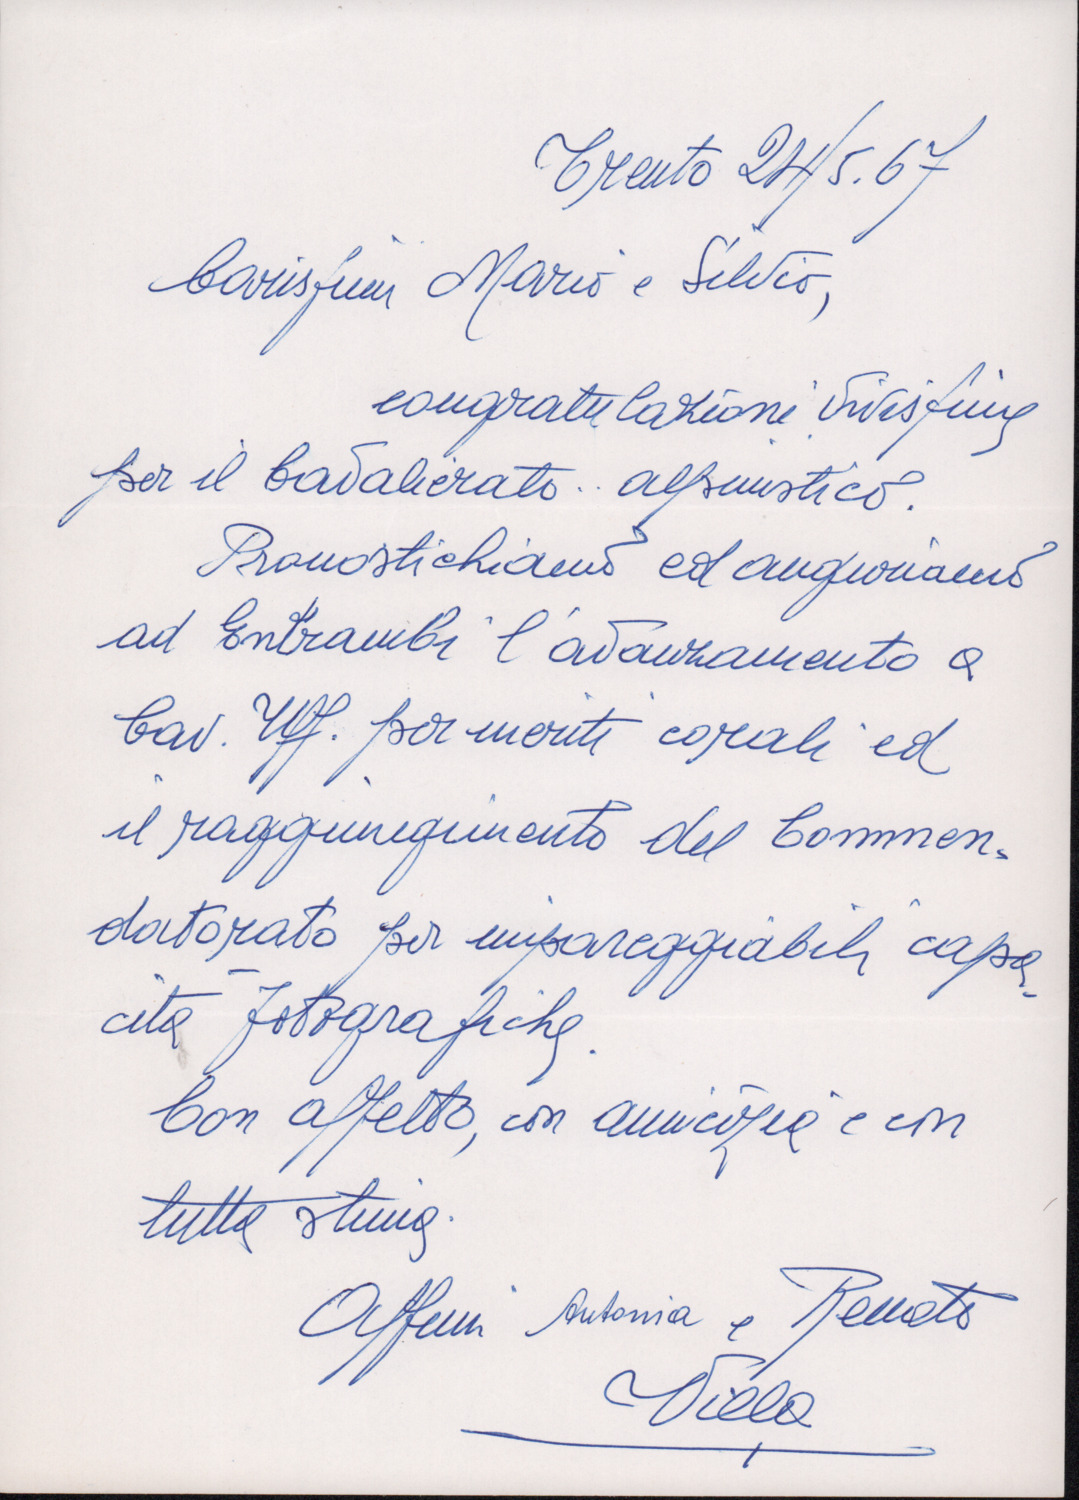 Trento 24/5.67
Carissimi Mario e Silvio,
congratulazioni vivissime
per il Cavalierato .. alpinistico.
Pronostichiamo ed auguriamo
ad Entrambi l'avanzamento a
Cav. Uff. per meriti corali ed
il raggiungimento del Commen-
datorato per impareggiabili capa-
cità fotografiche.
Con affetto, con amicizia e con
tutta stima.
Affmi Antonia e Renato
Villa